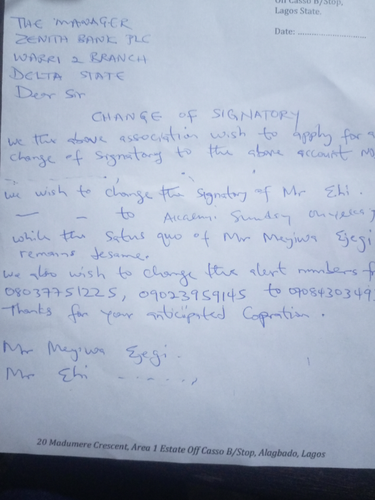 Off Casso B/Stop,
Lagos State.
Date: ........................
THE MANAGER
ZENITH BANK PLC
WARRI 2 BRANCH
DELTA STATE
Dear Sir
CHANGE OF SIGNATORY
We the above association wish to apply for a
change of Signatory to the above account No
We wish to change the Signatory of Mr Ehi.
— - to Sunday
while the Satus quo of Mr Meyiwa Ejegi
remains the same.
We also wish to change the alert numbers f
08037751225, 09023959145 to 0908430349
Thanks for your anticipated Copration.
Mr Meyiwa Ejegi.
Mr Ehi ......,
20 Madumere Crescent, Area 1 Estate Off Casso B/Stop, Alagbado, Lagos